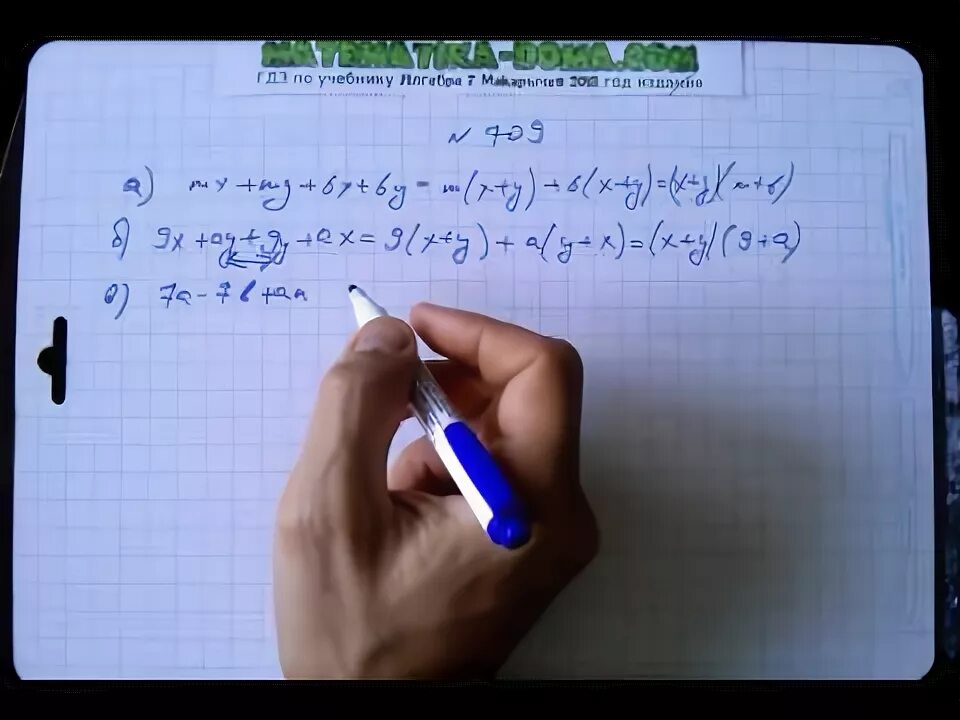 MATEMATIKA-DOMA.COM
ГДЗ по учебнику Алгебра 7 Макарычев год издания
N 709
а) mx + my + 6x + 6y = m(x+y) + 6(x+y) = (x+y)(m+6)
б) 9x + ay + 9y + ax = 9(x+y) + a(y+x) = (x+y)(9+a)
в) 7a - 7b + an